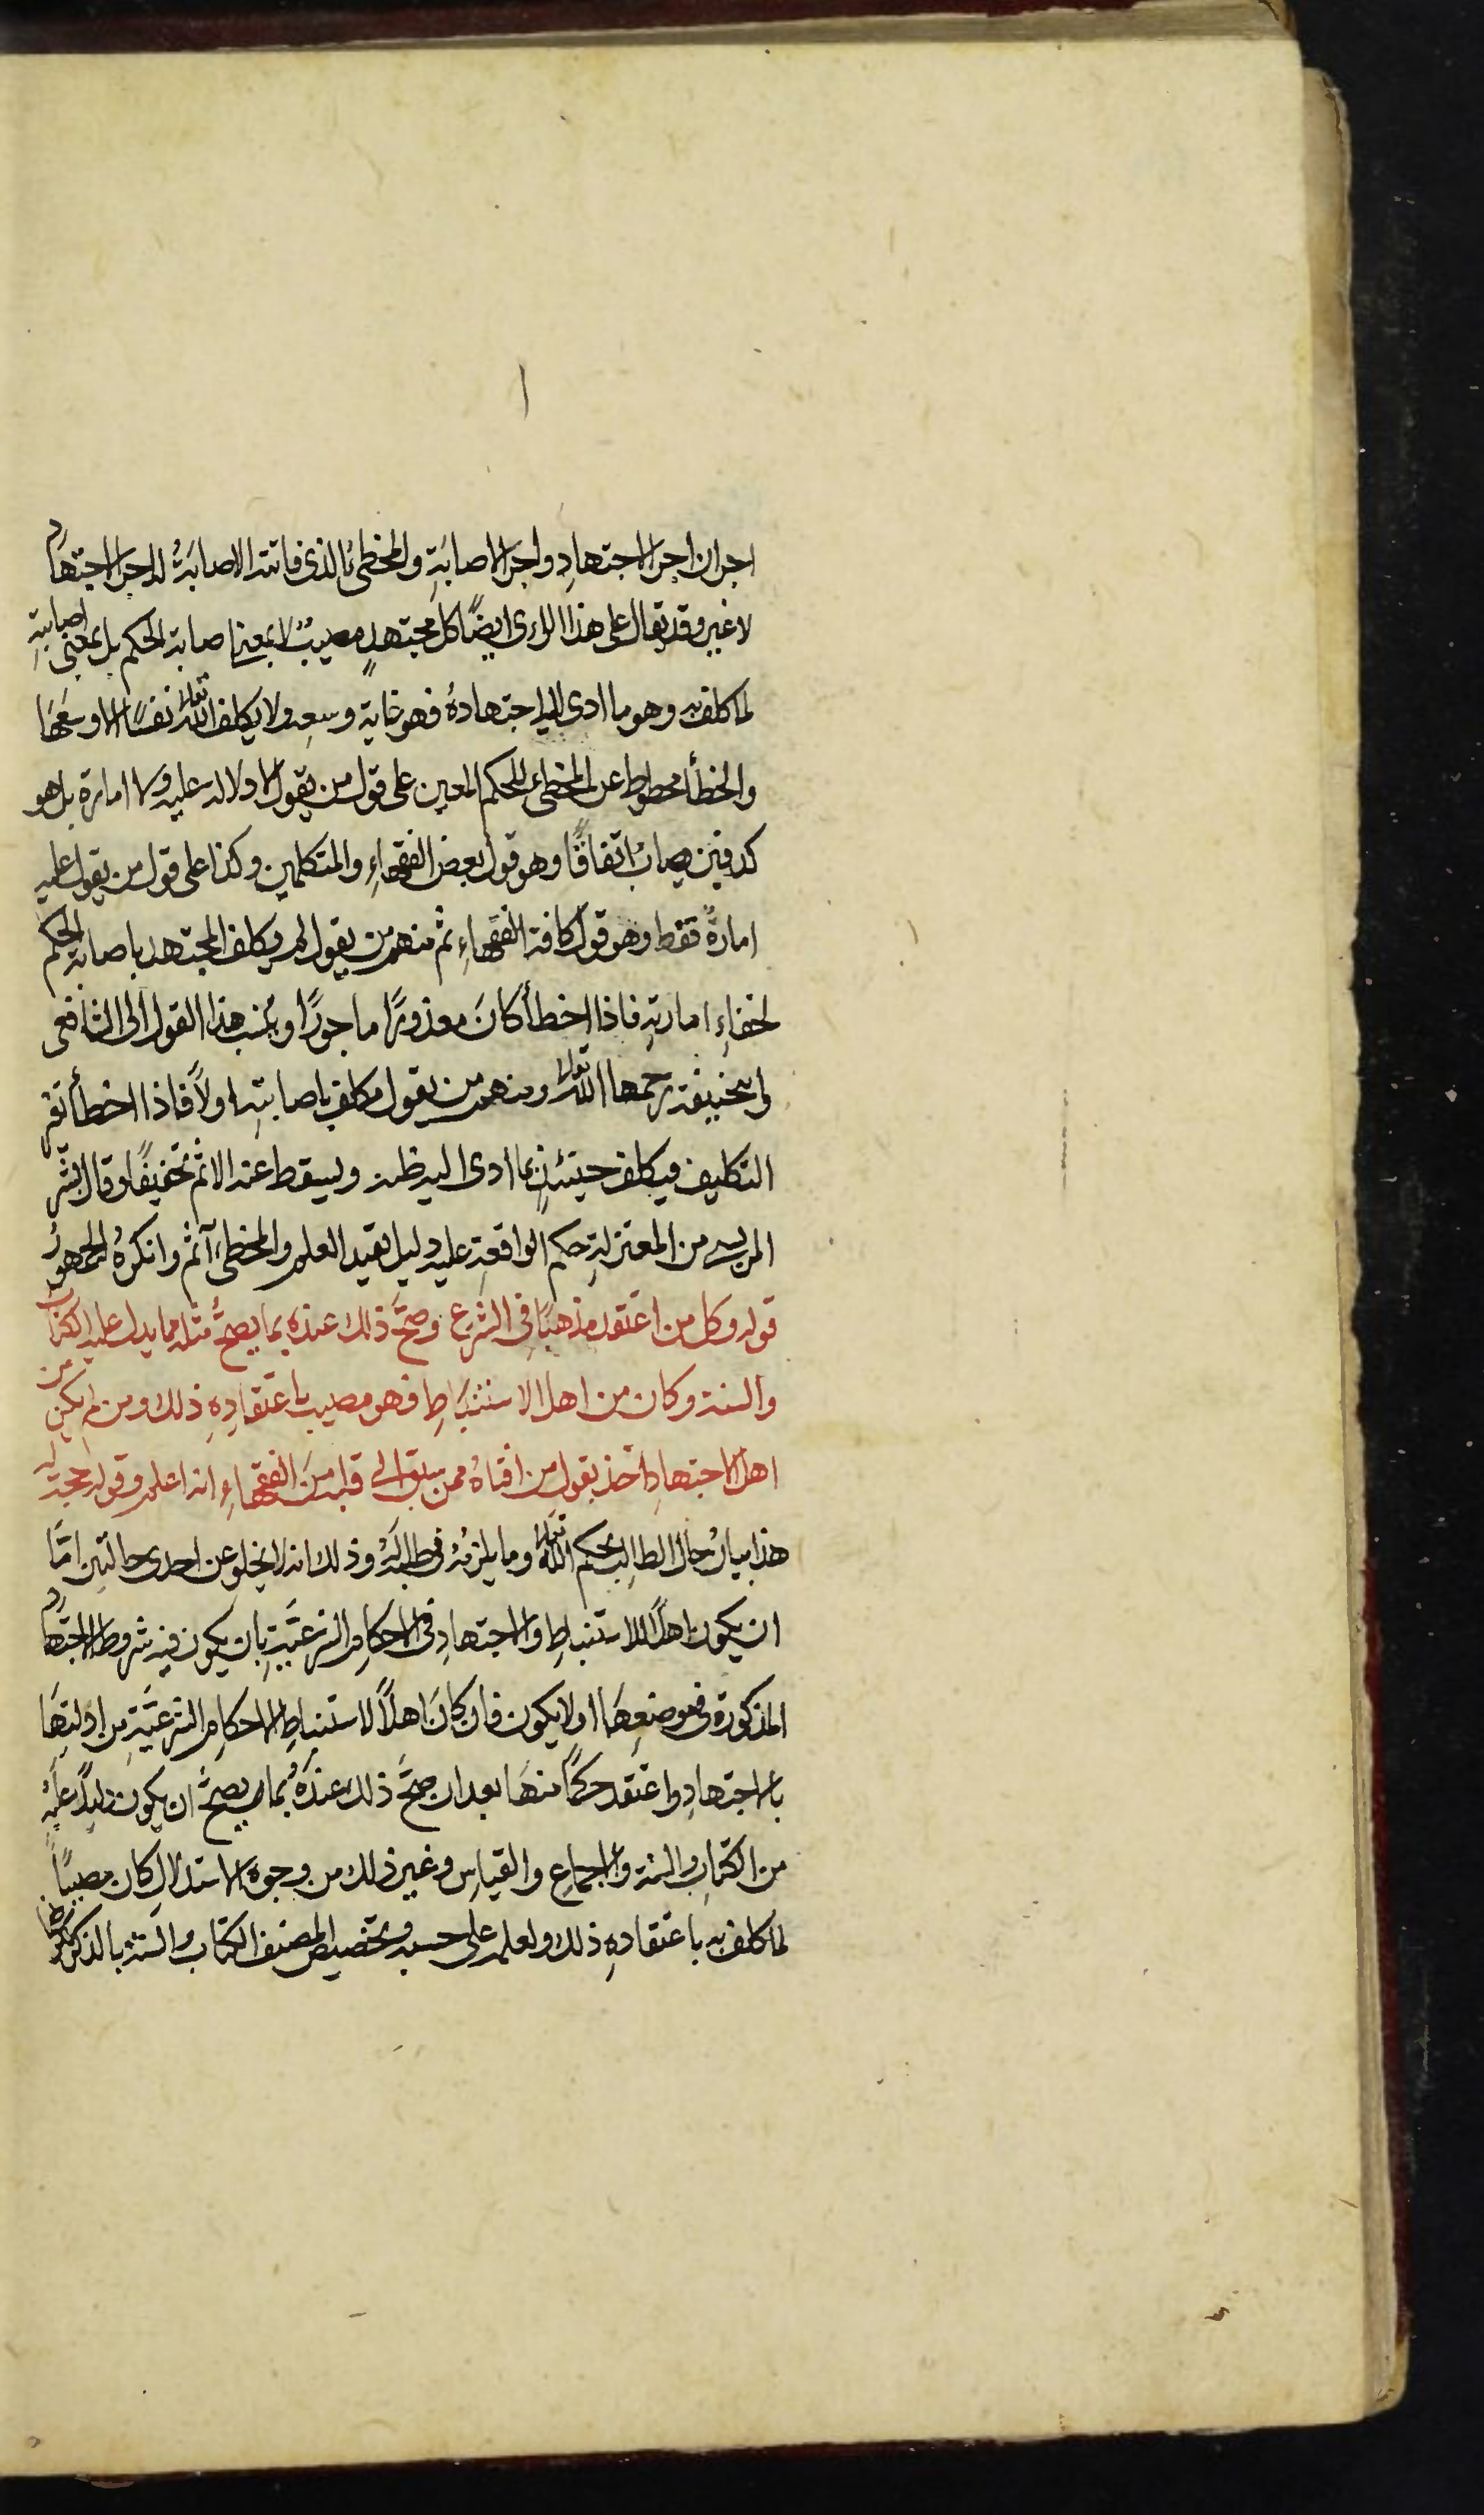 اجران اجر الاجتهادِ واجر الاصابَةِ والمخطىُٔ الذى فاتته الاصابَةُ له اجر الاجتهاد
لا غير وقد يقال على هذا الراى ايضًا كل مجتهدٍ مصيبٌ لا بمعنى اصابة الحكم بل بمعنى اصابتِهِ
لما كلف به وهو ما ادى اليه اجتهادهُ فهو غاية وسعِه ولا يكلف اللّٰه تعالى نفسًا الا وسعَهَا
والخطأ محطوط عن المخطىِٔ للحكم المعين على قول من يقول لا دلالة عليه ولا امارة بل هو
كدفين يصابُ اتفاقًا وهو قول بعض الفقهاءِ والمتكلمين وكذا على قول من يقول عليه
امارةٌ فقط وهو قول كافة الفقهاءِ ثم منهم من يقول لم يكلف المجتهد باصابة الحكم
لخفاءِ امارتِهِ فاذا اخطأ كانَ معذورًا ماجورًا وينسب هذا القول الى الشافعى
وابيحنيفة رحمهما اللّٰه تعالى ومنهم من يقول مكلف باصابتِه اولاً فاذا اخطأ تغير
التكليف فيكلف حينئذٍ بما ادى اليه ظنه ويسقط عنه الاثم تخفيفًا وقال بشر
المريسى من المعتزلةِ حكم الواقعةِ عليه دليل يفيد العلم والمخطىٔ آثم وانكرهُ الجمهورُ
قوله وكل من اعتقد مذهبًا فى الشرع وصحَّ ذلك عندهُ بما يصحُّ مثله مما يدل عليه الكتاب
والسنة وكان من اهل الاستنباطِ فهو مصيب باعتقادِهِ ذلك ومن لم يكن من
اهل الاجتهادِ اخذ بقول من افتاهُ ممن سبق الى قلبه من الفقهاءِ انه اعلم وقوله حجة له
هذا بيانُ حال الطالب لحكم اللّٰه تعالى وما يلزمُهُ فى طلبه وذلك انه لا يخلو عن احدى حالتين امَّا
ان يكون اهلاً للاستنباطِ والاجتهادِ فى الاحكام الشرعيَّةِ بان يكون فيه شروط الاجتهاد
المذكورة فى موضعِهَا او لا يكون فان كانَ اهلاً لاستنباطِ الاحكام الشرعيَّةِ من ادلتِهَا
بالاجتهادِ واعتقد حكمًا منهَا بعد ان صحَّ ذلك عندَهُ بما يصحُّ ان يكون دليلاً عليه
من الكتابِ والسنة والاجماعِ والقياسِ وغير ذلك من وجوه الاستدلالِ كان مصيبًا
لما كلف به باعتقادِهِ ذلك ولعلم على حسبه وتخصيص المصنف الكتاب والسنة بالذكر